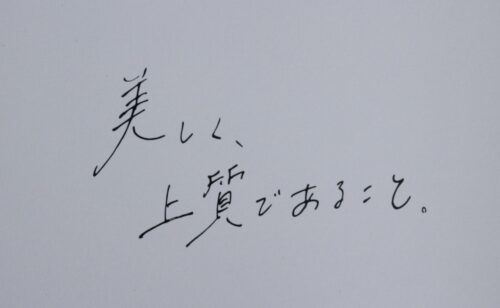 美しく、
上質であること。